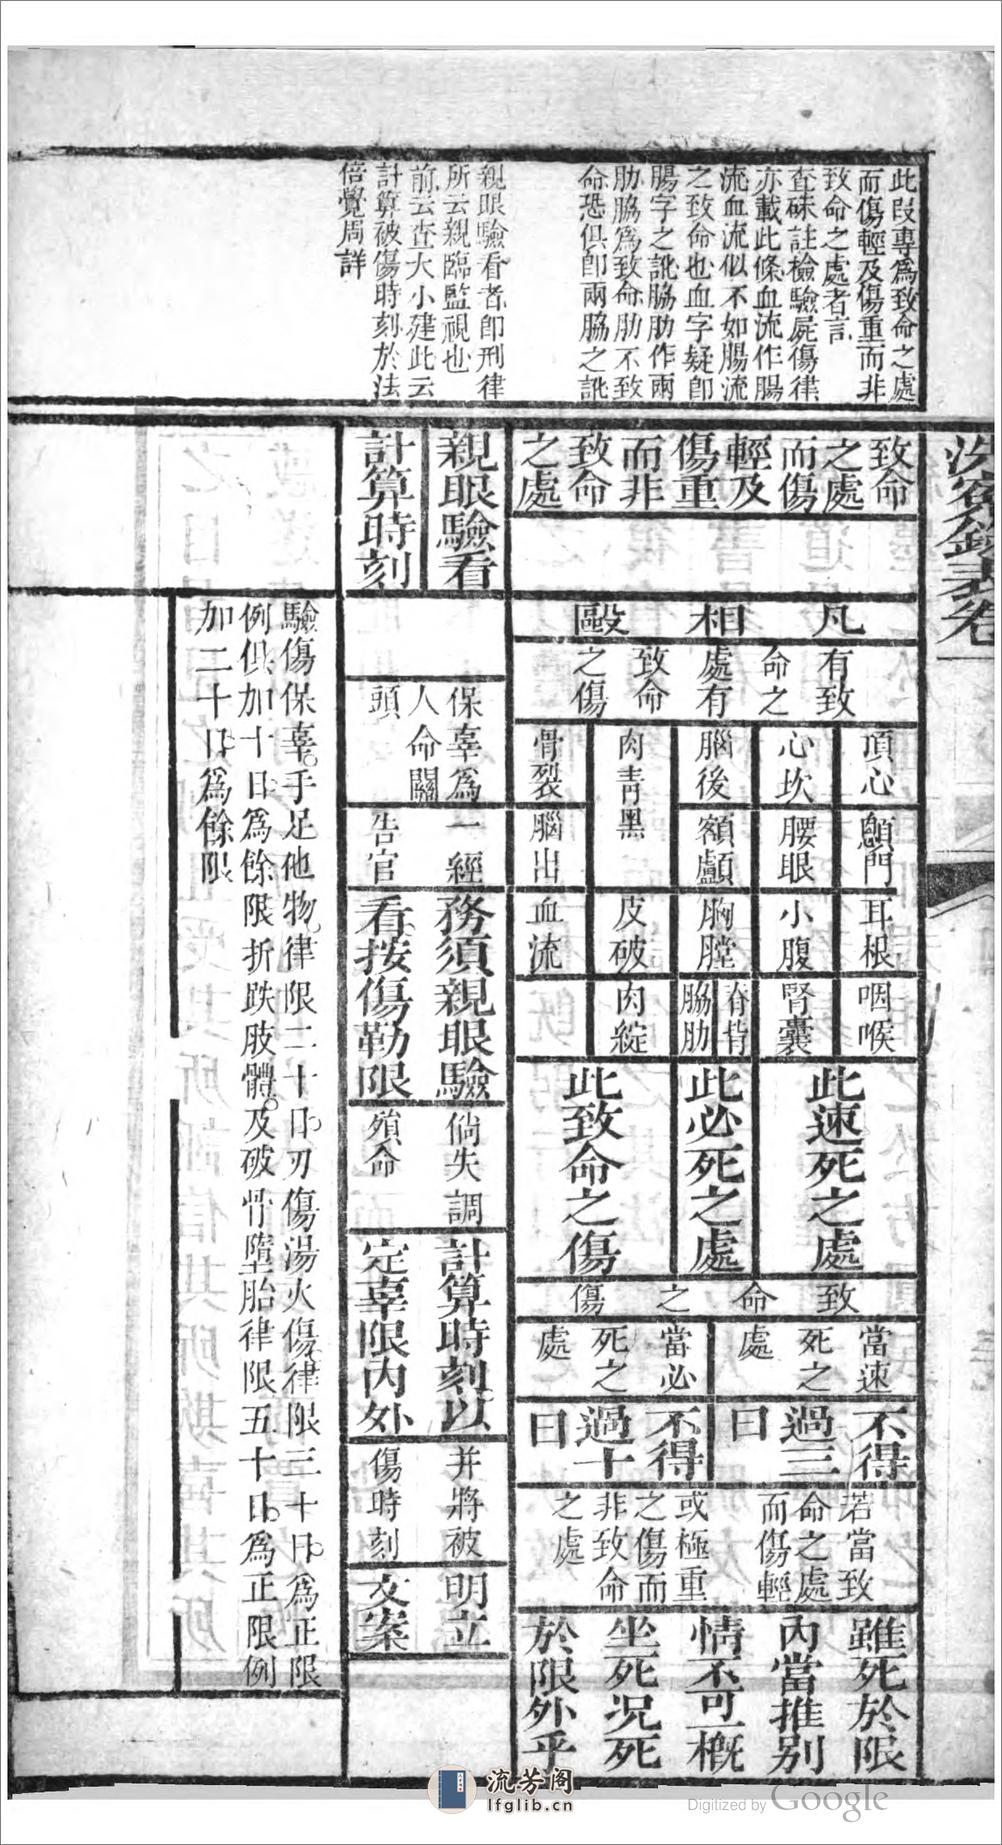 洗冤錄表卷一
此段專爲致命之處
而傷輕及傷重而非
致命之處者言
查硃註檢驗屍傷律
亦載此條血流作腸
流血流似不如腸流
之致命也血字疑卽
腸字之訛脇肋作兩
肋脇爲致命肋不致
命恐俱卽兩脇之訛
親眼驗看者卽刑律
所云親臨監視也
前云查大小建此云
計算被傷時刻於法
倍覺周詳
致命
之處
而傷
輕及
傷重
而非
致命
之處
凡相毆
有致
命之
處有
致命
之傷
頂心
顖門
耳根
咽喉
心坎
腰眼
小腹
腎囊
此速死之處
腦後
額顱
胸膛
脊背
脇肋
此必死之處
肉青黑
皮破
肉綻
骨裂
腦出
血流
此致命之傷
致命之傷
當速
死之
處
不得
過三
日
當必
死之
處
不得
過十
日
若當致
命之處
而傷輕
或極重
之傷而
非致命
之處
雖死於限
內當推別
情不可一概
坐死况死
於限外乎
親眼驗看
計算時刻
保辜爲
人命關
頭
一經
告官
務須親眼驗
看按傷勒限
倘失調
殞命
計算時刻以
定辜限內外
并將被
傷時刻
明立
文案
驗傷保辜手足他物律限二十日刃傷湯火傷律限三十日爲正限
例俱加十日爲餘限折跌肢體及破骨墮胎律限五十日爲正限例
加二十日爲餘限
流芳閣
lfglib.cn
Digitized by Google